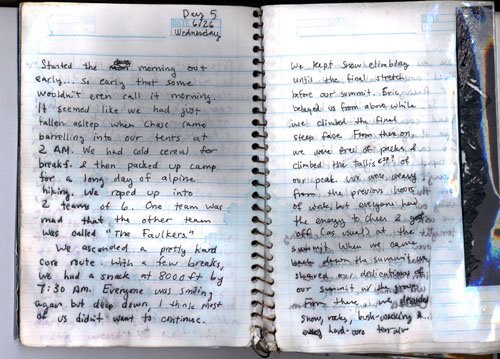 Day 5
DATE 6/26
Wednesday
Started the morning out
early.... so early that some
wouldn't even call it morning.
It seemed like we had just
fallen asleep when Chase came
barrelling into our tents at
2 AM. We had cold cereal for
breakf. & then packed up camp
for a long day of alpine
hiking. We roped up into
2 teams of 6. One team was
mad that the other team
was called "The Faulkers."
We ascended a pretty hard
core route. With a few breaks,
we had a snack at 8000 ft by
7:30 AM. Everyone was smiling
again but deep down, I think most
of us didn't want to continue.
We kept snow climbing
until the final stretch
before our summit. Eric
belayed us from above while
we climbed the final
steep face. From there on,
we were free of packs &
climbed the tallis of
our peak. We were weary
from the previous hours
of work, but everyone had
the energy to cheer & goof
off (as usual) at the
summit. When we came
down the summit, we
shared our dedications of
our summit w/ the group.
From there, we
snow, rocks, bush-wacking &...
hard-core terrain